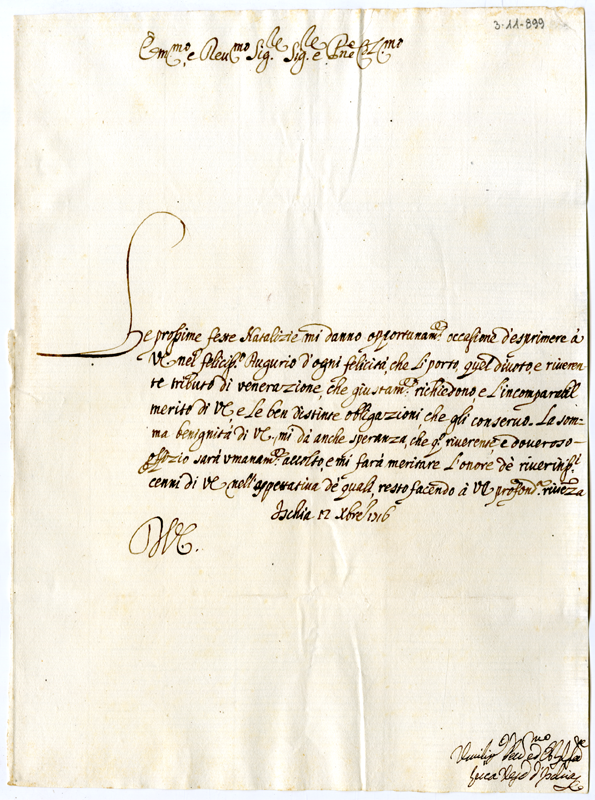 3-11-899
Em.mo e Reu.mo Sig.re Sig.re e P.ne Col.mo
Le prossime feste Natalizie, mi danno opportunam.te occasione d'esprimere à
VE nel felicis.o Augurio d'ogni felicità, che L'porto, quel diuoto, e riueren-
te tributo di venerazione, che giustam.te richiedono, e L'incomparabil
merito di VE e Le ben distinte obligazioni che gli conseruo. La som-
ma benignità di VE, mi dà anche speranza, che q.o riuerente, e doueroso
offizio sarà vmanam.te accolto, e mi farà meritare L'onore dè riueritiss.i
cenni di VE nell'aspettatiua de quali, resto facendo à VE profond.a riueza
Ischia 12 Xbre 1716
DVE.
Vmiliss.o Deu.mo ed Obl.
Luca Vesc.o d'Ischia